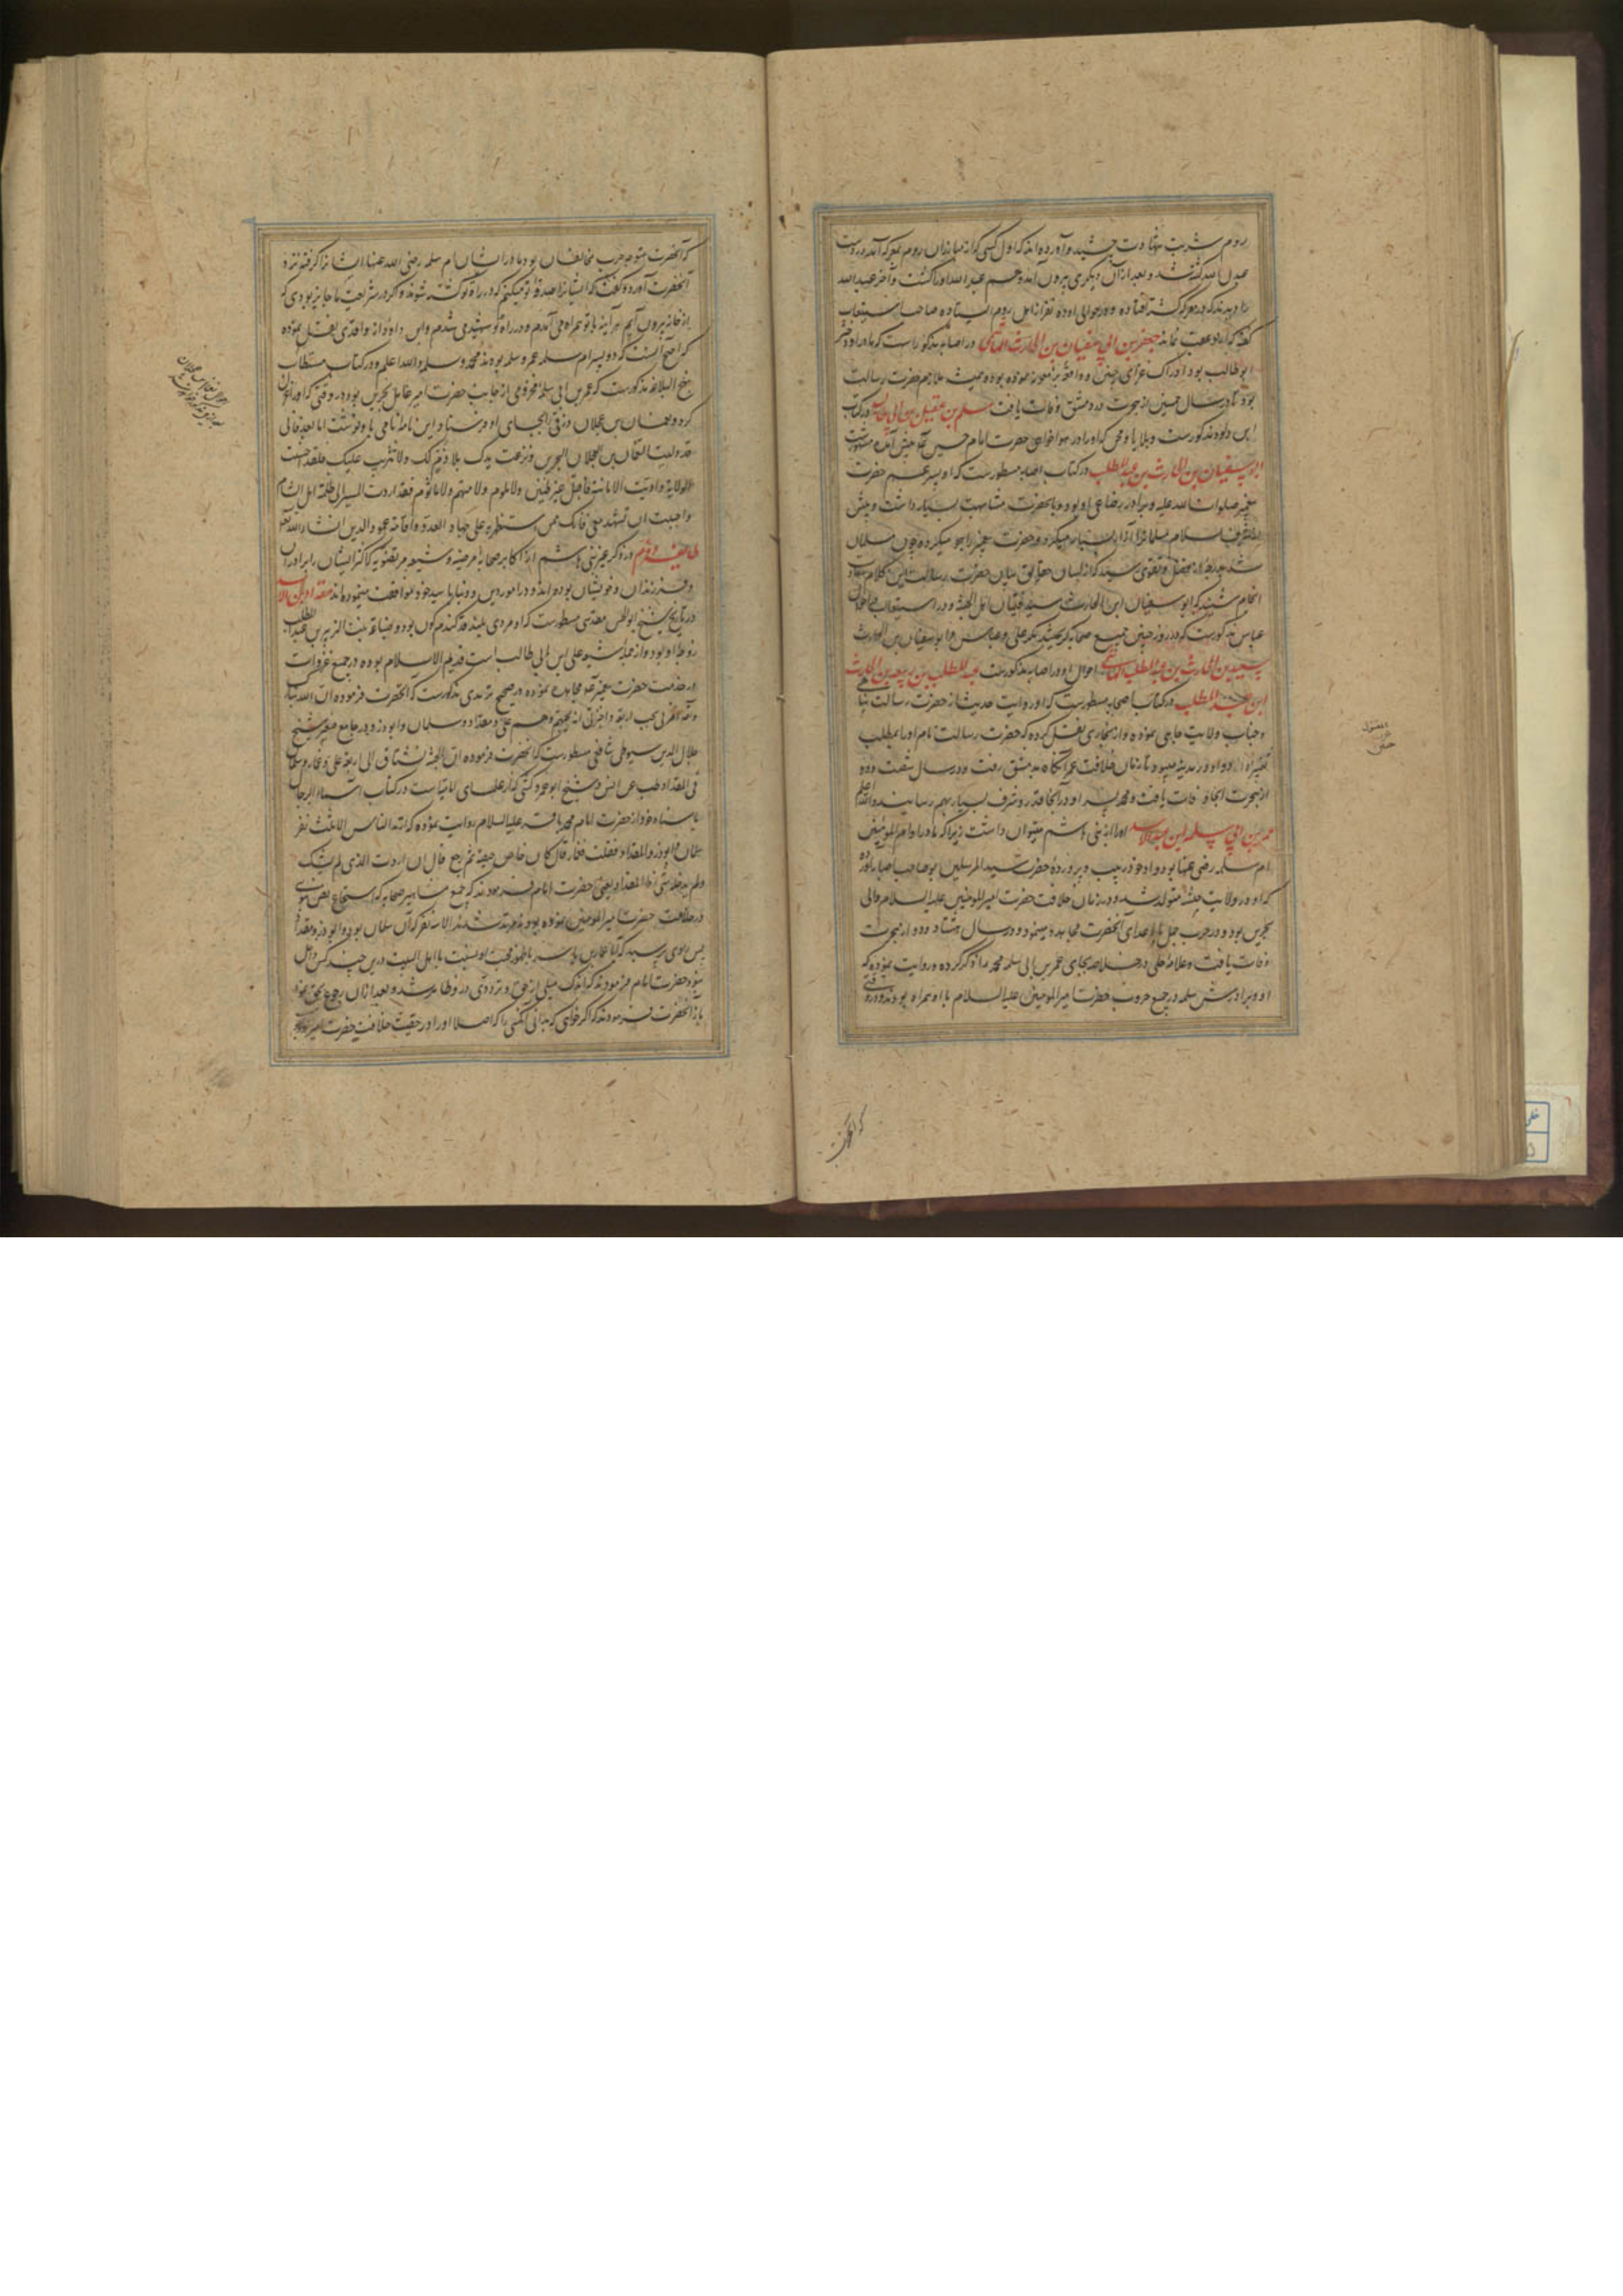 روم شربت شهادت چشید و آورده‌اند که اول کسی که از مبارزان روم بمعرکه آمد و بر دست
عبدالله کشته شد و بعد از آن دیگری بیرون آمد و هم عبدالله او را کشت و آخر عبدالله
را دیدند که در معرکه کشته افتاده و در حوالی او ده نفر از اهل روم افتاده صاحب استیعاب
گفته که از او عقب نمانده جعفر بن ابی سفیان بن الحارث الهاشمی در اصابه مذکور است که مادر او دختر
ابوطالب بود ادراک غزای حنین و همیشه ملازم حضرت رسالت
بود تا در سال خمسین از هجرت در دمشق وفات یافت مسلم بن عقیل بن ابی طالب در کتاب
ابن داود مذکور است و بلا یا و محن که او را در هواخواهی حضرت امام حسین پیش آمده مشهور است
ابوسفیان بن الحارث بن عبد المطلب در کتاب اصابه مسطور است که او پسر عم حضرت
پیغمبر صلوات الله علیه و برادر رضاعی او بود و با آنحضرت مشابهت بسیار داشت و پیش
از تشرف باسلام مسلمانان را آزار بسیار میکرد و حضرت پیغمبر را هجو میکرد و چون مسلمان
شد بمرتبه از فضل و تقوی رسید که از لسان حقایق بیان حضرت رسالت این کلام سعادت
انجام شنید که ابوسفیان ابن الحارث سید فتیان اهل الجنة و در استیعاب
عباس مذکور است که در روز حنین جمیع صحابه گریختند مگر علی و عباس و ابوسفیان بن الحارث
سعید بن الحارث بن عبد المطلب الهاشمی احوال او در اصابه مذکور است عبد المطلب بن ربیعه بن الحارث
ابن عبد المطلب در کتاب اصابه مسطور است که او روایت حدیث از حضرت رسالت پناهی
و جناب ولایت مآبی نموده و از بخاری نقل کرده که حضرت رسالت نام او را بمطلب
تغییر داد و او در مدینه میبود تا زمان خلافت عمر آنگاه بدمشق رفت و در سال شصت و دو
از هجرت آنجا وفات یافت و محمد پسر او در آنجا قدر و شرف بسیار بهم رسانید والله اعلم
عمر بن ابی سلمه ابن عبد الاسد او را از بنی هاشم میتوان داشت زیرا که مادر او ام المؤمنین
ام سلمه رضی عنها بود و او خود ربیب و پرورده حضرت سید المرسلین بود صاحب اصابه آورده
که او در ولایت حبشه متولد شد و در زمان خلافت حضرت امیر المؤمنین علیه السلام والی
بحرین بود و در حرب جمل با اعدای آنحضرت مجاهده مینمود و در سال هشتاد و دو از هجرت
وفات یافت و علامه حلی در خلاصه بجای عمر بن ابی سلمه محمد را ذکر کرده و روایت نموده که
او و برادرش سلمه در جمیع حروب حضرت امیر المؤمنین علیه السلام با او همراه بودند و در وقتی
که آنحضرت
که آنحضرت متوجه حرب مخالفان بود مادر ایشان ام سلمه رضی الله عنها ایشان را گرفته نزد
آنحضرت آورد و گفت که ایشان را صدقه تو میکنم که در راه تو کشته شوند و اگر در شریعت ما جایز بودی که
از خانه بیرون آیم هر آینه با تو همراه می‌آمدم و در راه تو شهید می‌شدم و ابن داود از واقدی نقل نموده
که اصح آنست که دو پسر ام سلمه عمر و سلمه بودند نه محمد و سلمه والله اعلم و در کتاب مستطاب
نهج البلاغه مذکور است که عمر بن ابی سلمه مخزومی از جانب حضرت امیر عامل بحرین بود و در وقتی که او را عزل
کرد و نعمان بن عجلان زرقی را بجای او فرستاد این نامه نامی باو نوشت اما بعد فانی
قد ولیت النعمان بن العجلان البحرین و نزعت یدک بلا ذم لک ولا تثریب علیک فلقد احسنت
الولایة وادیت الامانة فاقبل غیر ظنین ولا ملوم ولا متهم ولا مأثوم فقد اردت المسیر الی ظلمة اهل الشام
واحببت ان تشهد معی فانک ممن استظهر به علی جهاد العدو و اقامة عمود الدین انشاء الله تعالی
طایفه دوم در ذکر غیر بنی هاشم از اکابر صحابه مرضیه و شیعه مرتضویه که اکثر ایشان برادران
و فرزندان و خویشان بوده‌اند و در امور دین و دنیا با سید خود موافقت مینموده‌اند مقداد بن الاسود
در تاریخ شیخ ابوالحسن مقدسی مسطور است که او مردی بلند قد گندم گون بود و ضباعه بنت الزبیر بن عبد المطلب
زوجه او بود و از جمله شیعه علی ابن ابی طالب است قدیم الاسلام بوده در جمیع غزوات
در خدمت حضرت پیغمبر مجاهده نموده و در صحیح ترمذی مذکور است که آنحضرت فرموده ان الله تبارک
وتعالی امرنی بحب اربعة واخبرنی انه یحبهم وهم علی و مقداد و سلمان و ابوذر و در جامع صغیر شیخ
جلال الدین سیوطی شافعی مسطور است که آنحضرت فرموده ان الجنة تشتاق الی اربعة علی و عمار و سلمان
والمقداد طب عن انس و شیخ ابوعمرو کشی که از علمای امامیه است در کتاب اسماء الرجال
باسناد خود از حضرت امام محمد باقر علیه السلام روایت نموده که ارتد الناس الا ثلث نفر
سلمان و ابوذر والمقداد فقلت فعمار قال کان حاص حیصة ثم رجع قال ان اردت الذی لم یشک
ولم یدخله شی فالمقداد یعنی حضرت امام فرمودند که جمیع مشاهیر صحابه که استماع نص نبوی
در خلافت حضرت امیر المؤمنین نموده بودند مرتد شدند الا سه نفر که آن سلمان بود و ابوذر و مقداد
پس راوی پرسید که آیا عمار یاسر با ظهور محبت او نسبت باهل البیت درین چند کس داخل
نبود حضرت امام فرمودند که اندک میلی از حق و ترددی در او ظاهر شد و بعد از آن رجوع بحق نمود
باز آنحضرت فرمودند که اگر خواهی که بدانی آن کسی را که اصلا او را در حقیت خلافت حضرت امیر